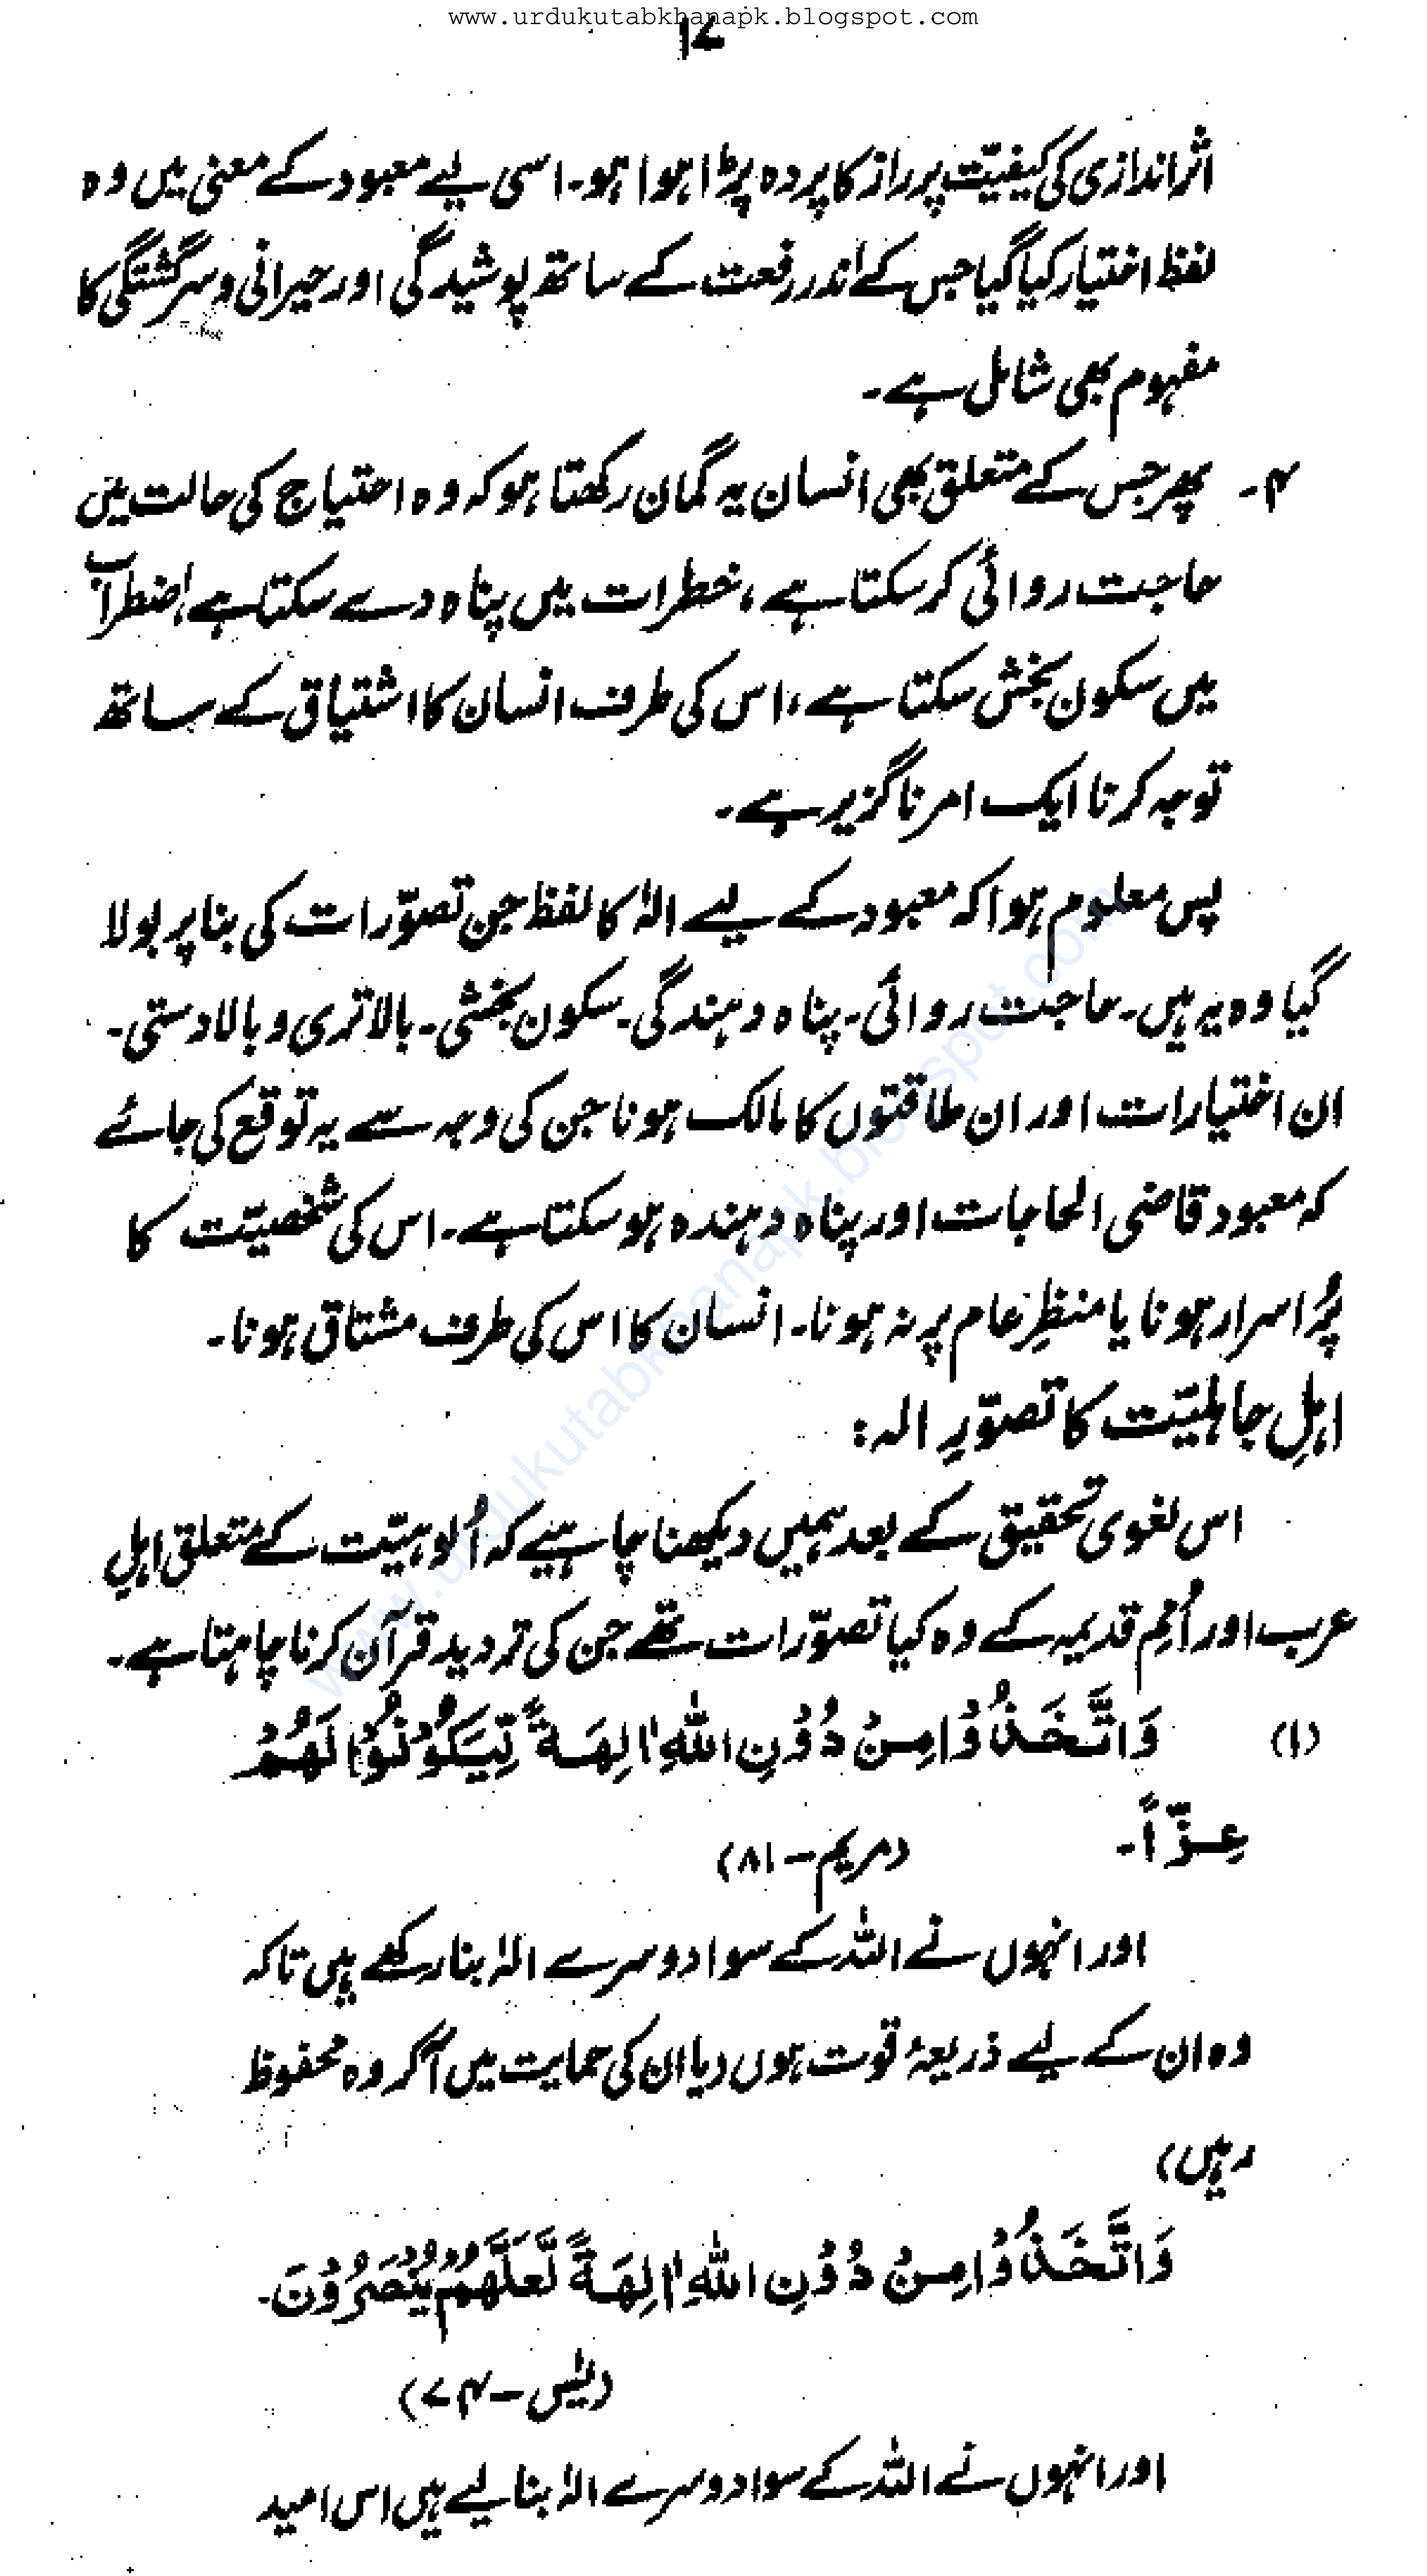 www.urdukutabkhanapk.blogspot.com
۱۷
اثر اندازی کی کیفیّت پر راز کا پردہ پڑا ہوا ہو۔ اسی لیے معبود کے معنی میں وہ
لفظ اختیار کیا گیا جس کے اندر رفعت کے ساتھ پوشیدگی اور حیرانی و سرگشتگی کا
مفہوم بھی شامل ہے۔
۴۔ پھر جس کے متعلق بھی انسان یہ گمان رکھتا ہو کہ وہ احتیاج کی حالت میں
حاجت روائی کر سکتا ہے، خطرات میں پناہ دے سکتا ہے، اضطراب
میں سکون بخش سکتا ہے، اس کی طرف انسان کا اشتیاق کے ساتھ
توجہ کرنا ایک امر ناگزیر ہے۔
پس معلوم ہوا کہ معبود کے لیے الٰہ کا لفظ جن تصوّرات کی بنا پر بولا
گیا وہ یہ ہیں۔ حاجت روائی۔ پناہ دہندگی۔ سکون بخشی۔ بالاتری و بالادستی۔
ان اختیارات اور ان طاقتوں کا مالک ہونا جن کی وجہ سے یہ توقع کی جائے
کہ معبود قاضی الحاجات اور پناہ دہندہ ہو سکتا ہے۔ اس کی شخصیّت کا
پُر اسرار ہونا یا منظرِ عام پر نہ ہونا۔ انسان کا اس کی طرف مشتاق ہونا۔
اہلِ جاہلیّت کا تصوّرِ الٰہ:
اس لغوی تحقیق کے بعد ہمیں دیکھنا چاہیے کہ اُلوہیّت کے متعلق اہلِ
عرب اور اُمَمِ قدیمہ کے وہ کیا تصوّرات تھے جن کی تردید قرآن کرنا چاہتا ہے۔
(۱) وَاتَّخَذُوْا مِنْ دُوْنِ اللّٰهِ اٰلِهَةً لِّيَكُوْنُوْا لَهُمْ
عِزّاً۔ (مریم – ۸۱)
اور انہوں نے اللہ کے سوا دوسرے الٰہ بنا رکھے ہیں تاکہ
وہ ان کے لیے ذریعۂ قوت ہوں (یا ان کی حمایت میں آکر وہ محفوظ
رہیں)
وَاتَّخَذُوْا مِنْ دُوْنِ اللّٰهِ اٰلِهَةً لَّعَلَّهُمْ يُنْصَرُوْنَ۔
(یٰس – ۷۴)
اور انہوں نے اللہ کے سوا دوسرے الٰہ بنا لیے ہیں اس امید
www.urdukutabkhanapk.blogspot.com